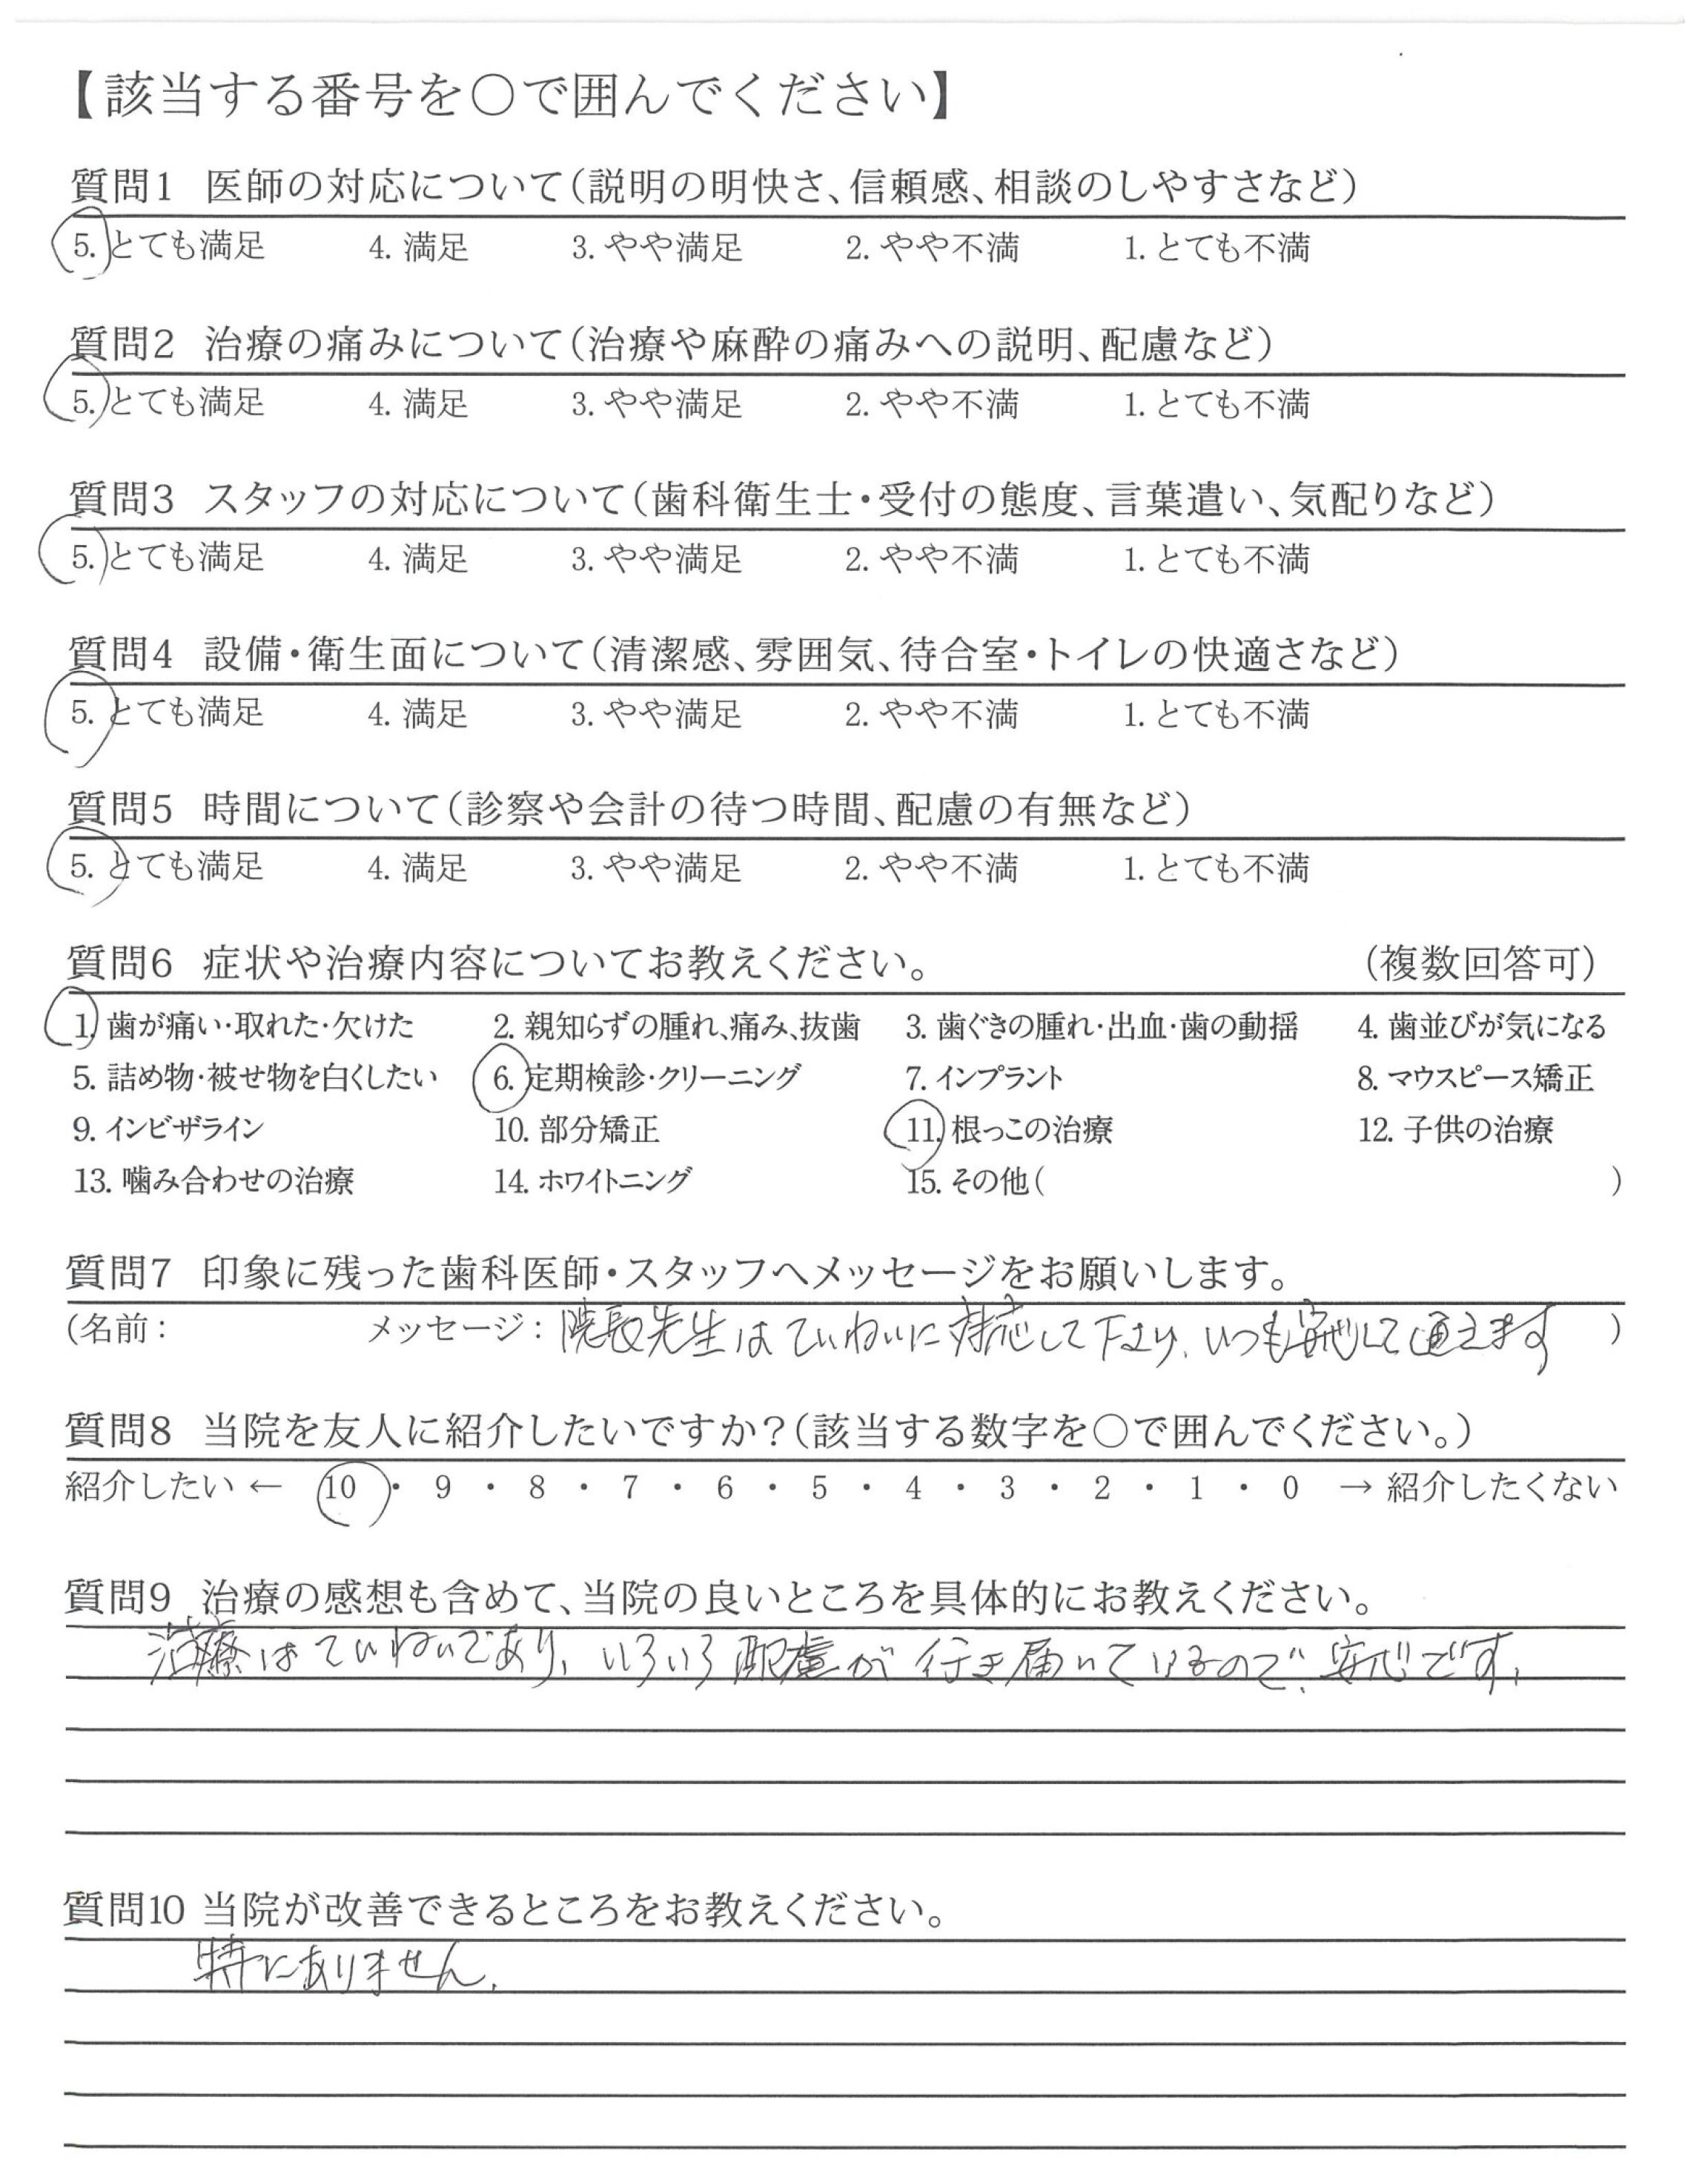 【該当する番号を○で囲んでください】
質問1 医師の対応について(説明の明快さ、信頼感、相談のしやすさなど)
5. とても満足 4. 満足 3. やや満足 2. やや不満 1. とても不満
質問2 治療の痛みについて(治療や麻酔の痛みへの説明、配慮など)
5. とても満足 4. 満足 3. やや満足 2. やや不満 1. とても不満
質問3 スタッフの対応について(歯科衛生士・受付の態度、言葉遣い、気配りなど)
5. とても満足 4. 満足 3. やや満足 2. やや不満 1. とても不満
質問4 設備・衛生面について(清潔感、雰囲気、待合室・トイレの快適さなど)
5. とても満足 4. 満足 3. やや満足 2. やや不満 1. とても不満
質問5 時間について(診察や会計の待つ時間、配慮の有無など)
5. とても満足 4. 満足 3. やや満足 2. やや不満 1. とても不満
質問6 症状や治療内容についてお教えください。 (複数回答可)
1. 歯が痛い・取れた・欠けた 2. 親知らずの腫れ、痛み、抜歯 3. 歯ぐきの腫れ・出血・歯の動揺 4. 歯並びが気になる
5. 詰め物・被せ物を白くしたい 6. 定期検診・クリーニング 7. インプラント 8. マウスピース矯正
9. インビザライン 10. 部分矯正 11. 根っこの治療 12. 子供の治療
13. 噛み合わせの治療 14. ホワイトニング 15. その他( )
質問7 印象に残った歯科医師・スタッフへメッセージをお願いします。
(名前: メッセージ: 院長先生はていねいに対応して下さり、いつも安心して通えます )
質問8 当院を友人に紹介したいですか?(該当する数字を○で囲んでください。)
紹介したい ← 10 ・ 9 ・ 8 ・ 7 ・ 6 ・ 5 ・ 4 ・ 3 ・ 2 ・ 1 ・ 0 → 紹介したくない
質問9 治療の感想も含めて、当院の良いところを具体的にお教えください。
治療はていねいであり、いろいろ配慮が行き届いているので、安心です。
質問10 当院が改善できるところをお教えください。
特にありません。